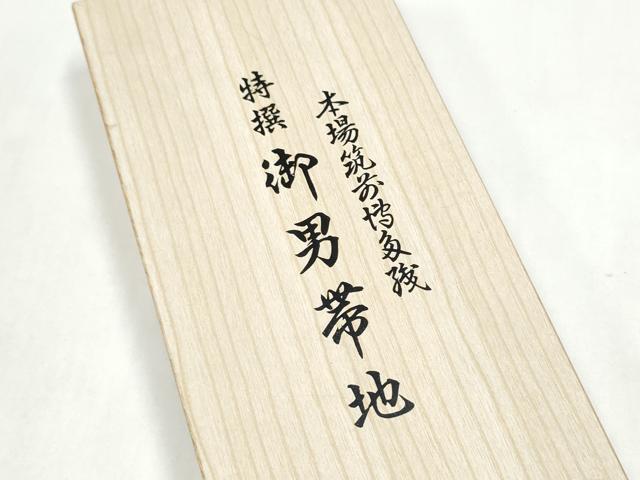 本場筑前博多織
特撰 御男帯地